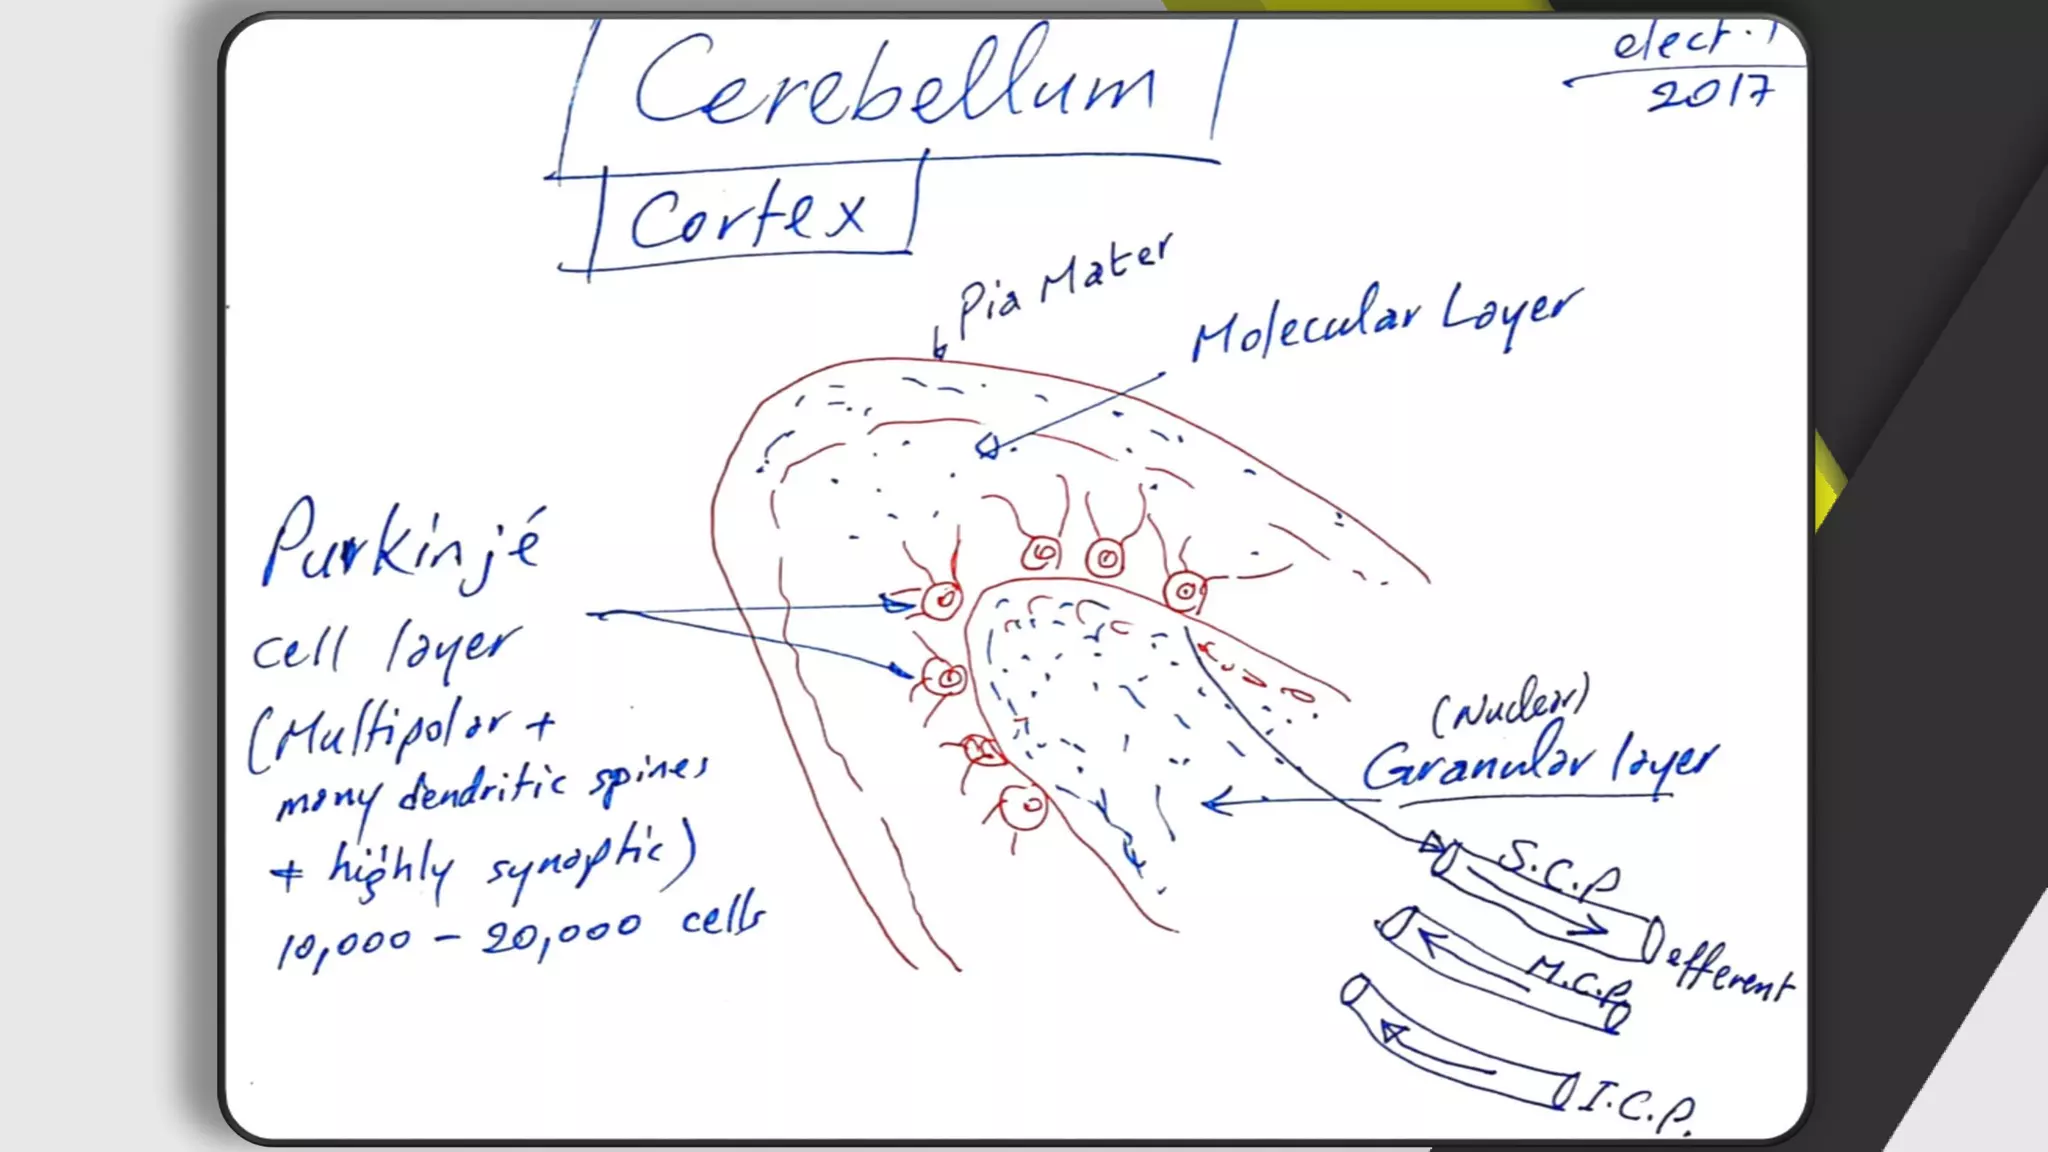 Cerebellum
elect.1
2017
Cortex
Pia Mater
Molecular Layer
Purkinjé
cell layer
(Multipolar +
many dendritic spines
+ highly synaptic)
10,000 - 20,000 cells
(Nuclear)
Granular layer
S.C.P
efferent
M.C.P.
I.C.P.